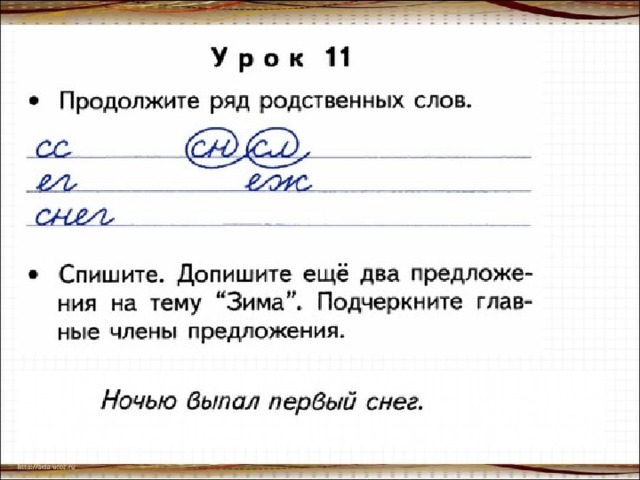 Урок 11
• Продолжите ряд родственных слов.
сс сн сл
ег еж
снег
• Спишите. Допишите ещё два предложе-
ния на тему “Зима”. Подчеркните глав-
ные члены предложения.
Ночью выпал первый снег.